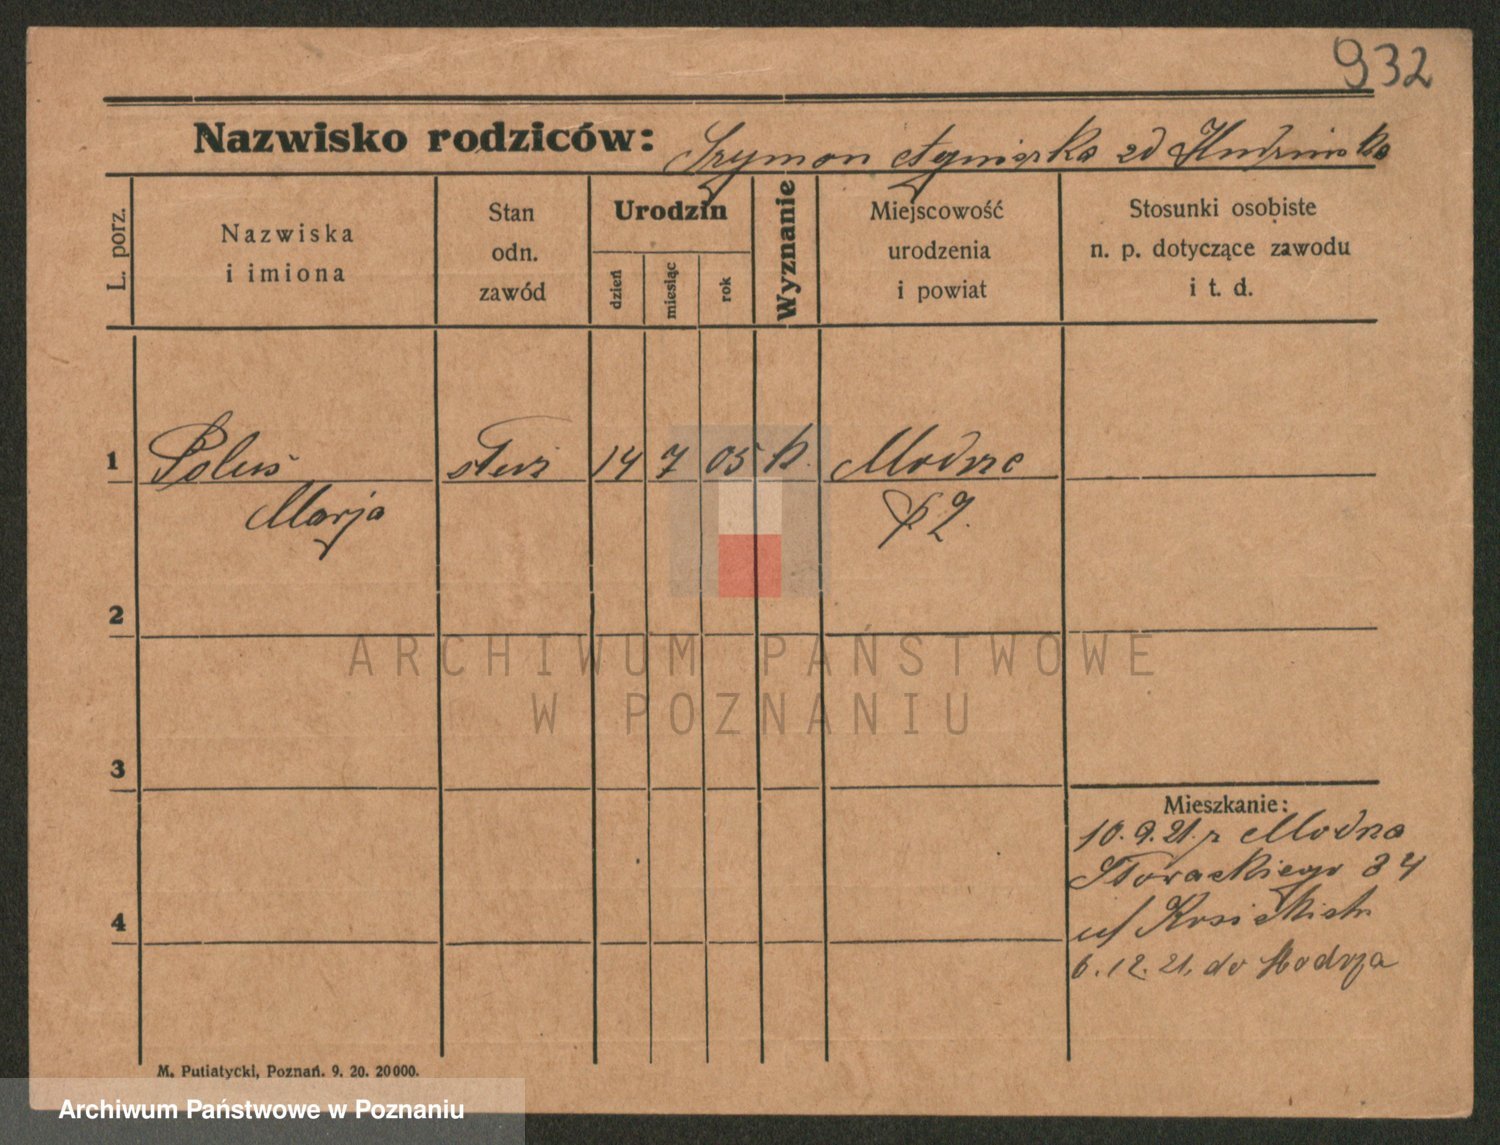 932
Nazwisko rodziców: Szymon Agnieszka zd
L. porz.
Nazwiska
i imiona
Stan
odn.
zawód
Urodzin
dzień
miesiąc
rok
Wyznanie
Miejscowość
urodzenia
i powiat
Stosunki osobiste
n. p. dotyczące zawodu
i t. d.
1 Poluś służ 14 7 05 k. Modrze
Marja
2
3
4
Mieszkanie:
10.9.21. z Modrza
Słowackiego 34
u/
6.12.21. do Modrza
M. Putiatycki, Poznań. 9. 20. 20000.
ARCHIWUM PAŃSTWOWE
W POZNANIU
Archiwum Państwowe w Poznaniu